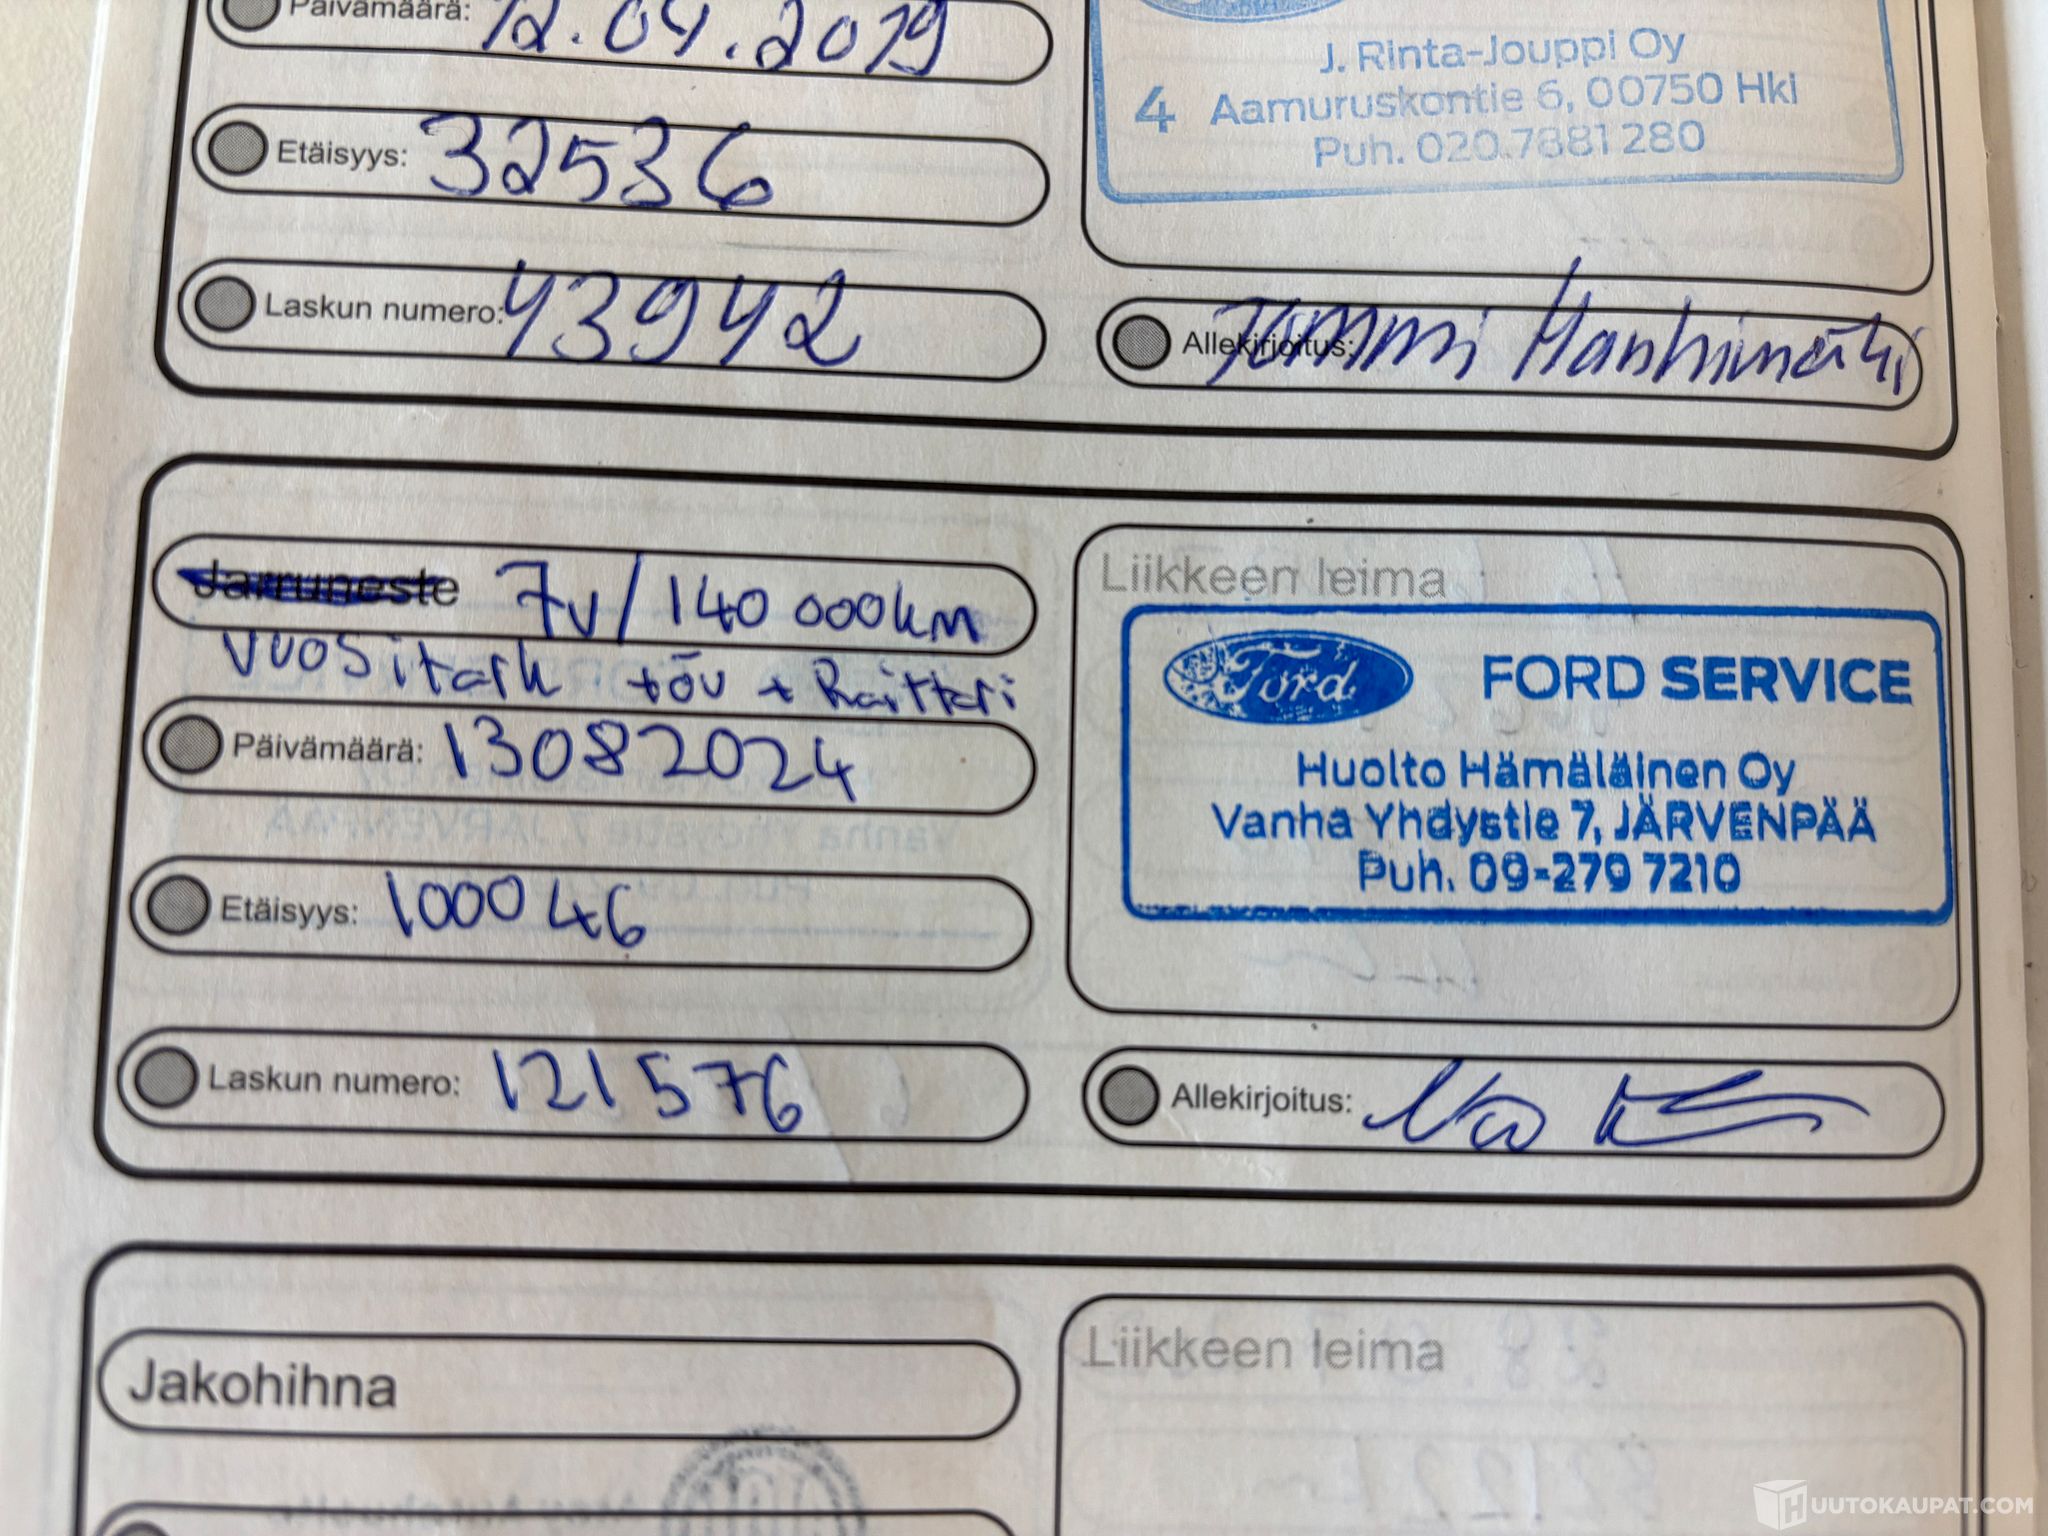 Päivämäärä: 12.04.2019
J. Rinta-Jouppi Oy
4 Aamuruskontie 6, 00750 Hki
Puh. 020 7881 280
Etäisyys: 32536
Laskun numero: 43942
Allekirjoitus: Tommi Hanhimäki
Jarruneste 7v/140 000km
vuositark + öv + Raittari
Päivämäärä: 13082024
Etäisyys: 100046
Laskun numero: 121576
Liikkeen leima
Ford FORD SERVICE
Huolto Hämäläinen Oy
Vanha Yhdystie 7, JÄRVENPÄÄ
Puh. 09-279 7210
Allekirjoitus:
Jakohihna
Liikkeen leima
HUUTOKAUPAT.COM